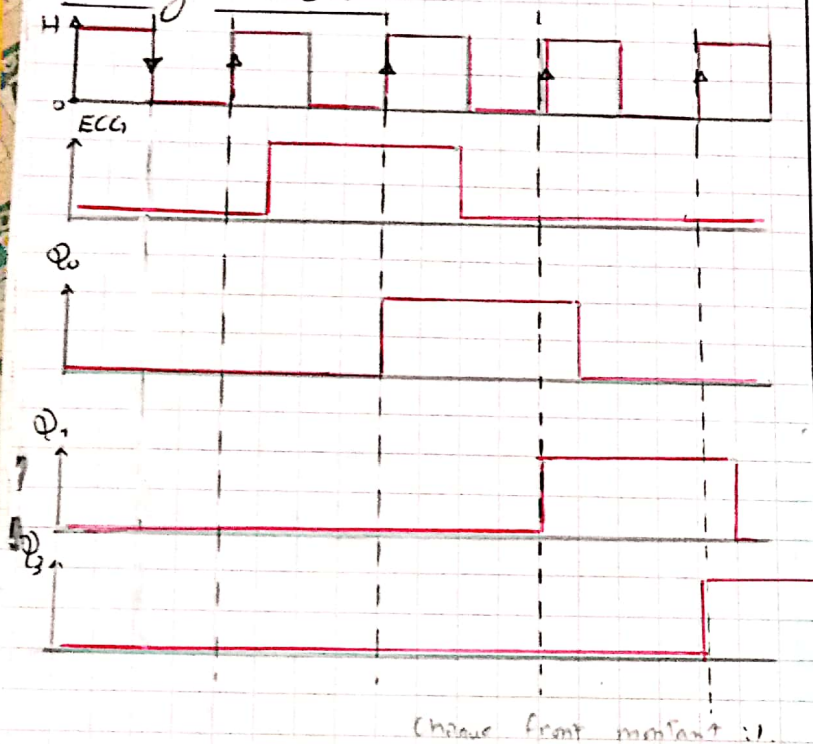 H
0
ECG
Q0
Q1
Q3
Chaque front montant